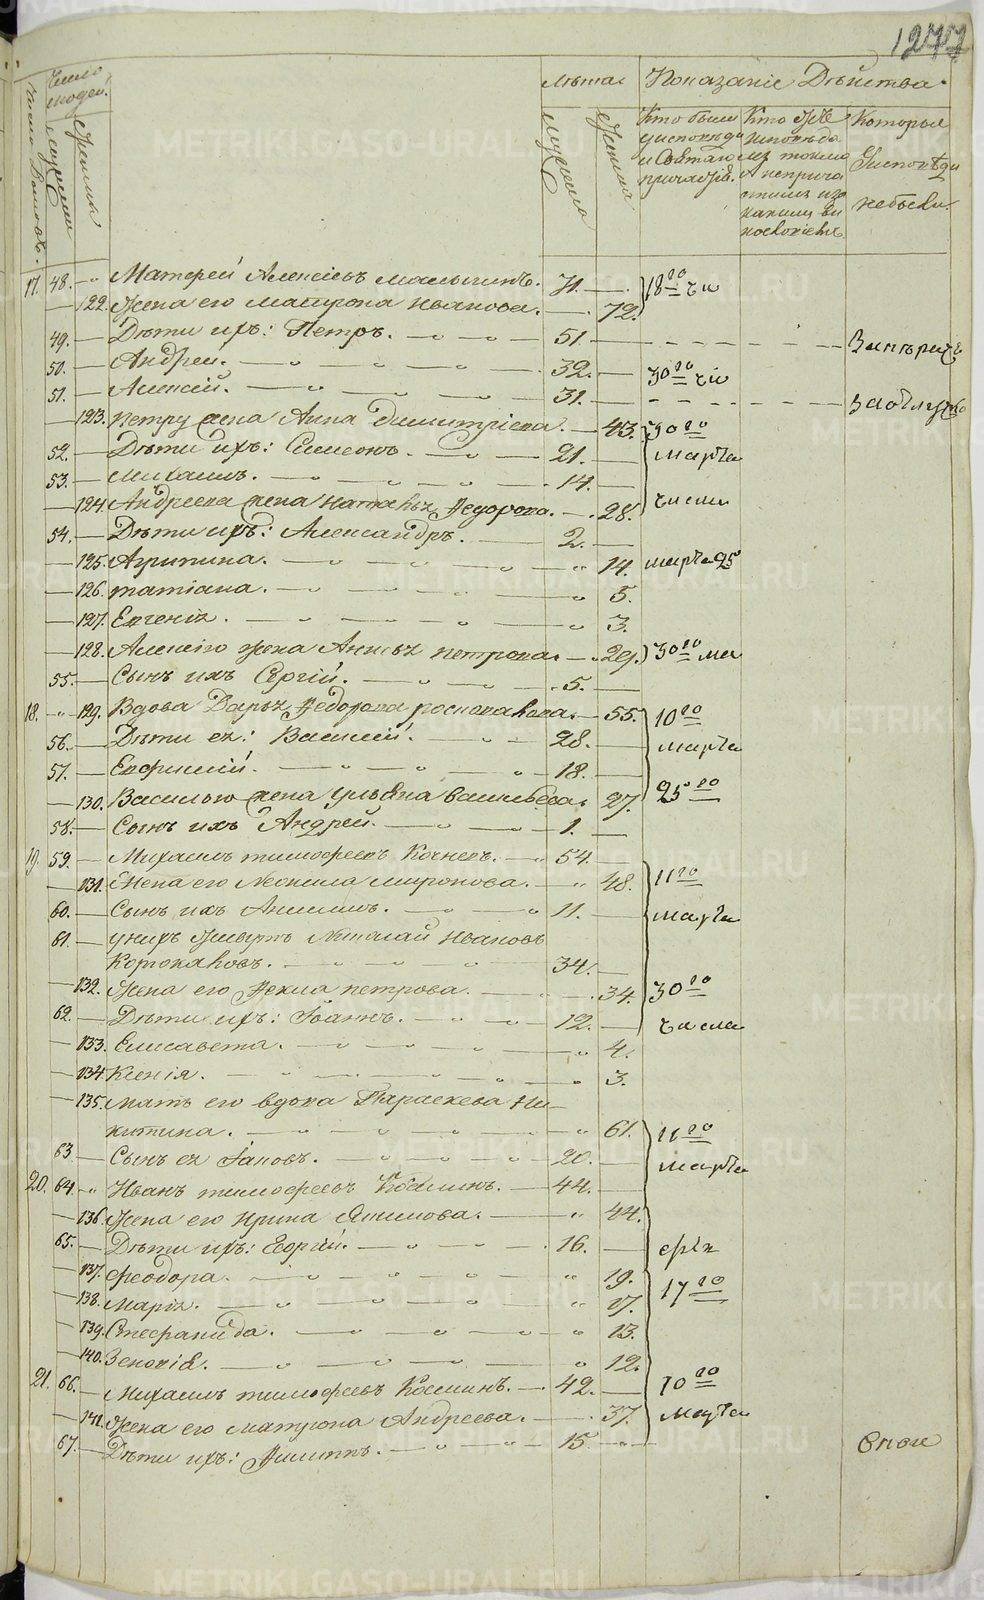 1277
Число Домовъ.
Число людей.
мужеска
женска
Лѣта
мужеска
женска
Показаніе Дѣйства.
Кто были у исповѣди и Святаго причастія.
Кто же исповѣдались токмо а непричастились и за какимъ винословіемъ
Которыя у исповѣди небыли.
17. 48. — Матфей Алексіевъ 71. 18го чи
122. Жена его Матрона Иванова. 72.
49. Дѣти ихъ: Петръ. 51.
50. Андрей. 32. 30го чи
51. Алексій. 31.
123. Петру жена Анна Димитріева. 43. 30го
52. Дѣти ихъ: Симеонъ. 21. марта
53. Михаилъ. 14.
124. Андреева жена Наталья Федорова. 28. числа
54. Дѣти ихъ: Александръ. 2.
125. Агрипина. 14. марта 25
126. татіана. 5.
127. Евгенія. 3.
128. Алексію жена Анна петрова. 29. 30го ма
55. Сынъ ихъ Сергій. 5.
18. 129. Вдова Дарья Федорова 55. 10го
56. Дѣти ея: Василій. 28. марта
57. Евфимій. 18.
130. Василью жена Ульяна Васильева. 27. 25го
58. Сынъ ихъ Андрей. 1.
19. 59. Михаилъ тимофеевъ 54.
131. Жена его Неонила миронова. 48. 11го
60. Сынъ ихъ 11. марта
61. у нихъ Николай Ивановъ
34.
132. Жена его Фекла петрова. 34. 30го
62. Дѣти ихъ: Іоаннъ. 12. числа
133. Елисавета. 4.
134. Ксенія. 3.
135. мать его вдова Параскева Ни-
китина. 61. 11го
63. Сынъ ея Іаковъ. 20. марта
20. 64. Иванъ тимофеевъ 44.
136. Жена его Ирина Якимова. 44.
65. Дѣти ихъ: Георгій. 16.
137. феодора. 19. 17го
138. марія. 17.
139. Стефанида. 13.
140. Зеновія. 12.
21. 66. Михаилъ тимофеевъ 42. 10го
141. Жена его матрона Андреева. 37. марта
67. Дѣти ихъ: Филиппъ. 15.